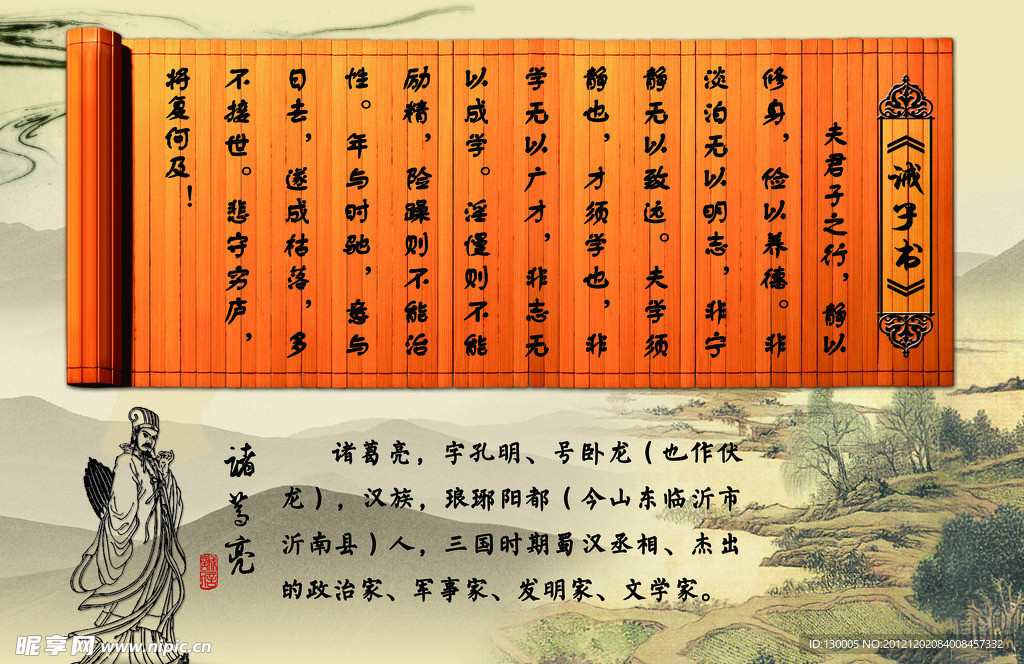 《诫子书》
夫君子之行，静以
修身，俭以养德。非
淡泊无以明志，非宁
静无以致远。夫学须
静也，才须学也，非
学无以广才，非志无
以成学。淫慢则不能
励精，险躁则不能治
性。年与时驰，意与
日去，遂成枯落，多
不接世。悲守穷庐，
将复何及！
诸葛亮
诸葛亮，字孔明、号卧龙（也作伏
龙），汉族，琅琊阳都（今山东临沂市
沂南县）人，三国时期蜀汉丞相、杰出
的政治家、军事家、发明家、文学家。
昵享网 www.nipic.cn
ID:130005 NO:20121202084008457332